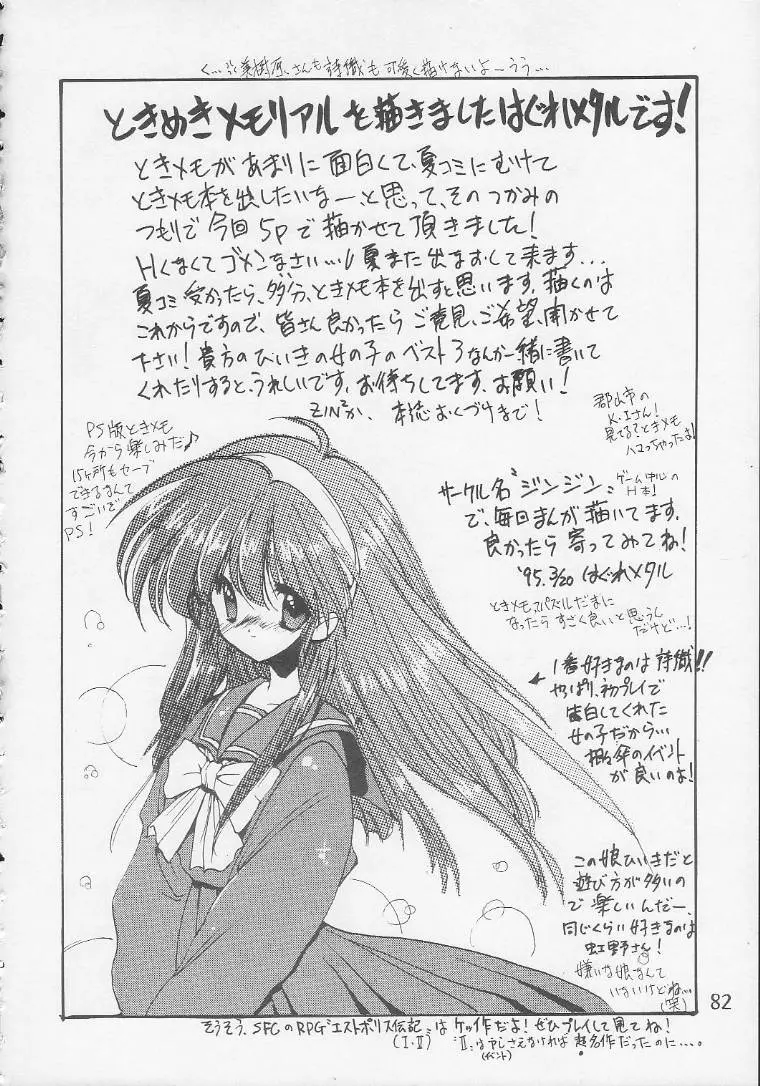 く…美樹原さんも詩織も可愛く描けないよーうう…
ときめきメモリアルを描きましたはぐれメタルです!
ときメモがあまりに面白くて、夏コミにむけて
ときメモ本を出したいなー、と思って、そのつかみの
つもりで今回5Pで描かせて頂きました!
Hくなくてゴメンなさい…! 夏また出なおして来ます…
夏コミ受かったら、多分、ときメモ本を出すと思います。描くのは
これからですので、皆さん良かったらご意見、ご希望、聞かせて
下さい! 貴方のひいきの女の子のベスト3なんか一緒に書いて
くれたりすると、うれしいです。お待ちしてます。お願い!
ZIN²か、本誌おくづけまで!
郡山市の
K・Iさん!
見てる?ときメモ
ハマっちゃったよ!
PS版ときメモ
今から楽しみだ♪
15ヶ所もセーブ
できるなんて
すごいぞ
PS!
サークル名“ジンジン”
ゲーム中心の
H本!
で、毎回まんが描いてます。
良かったら寄ってみてね!
'95.3/20 はぐれメタル
ときメモ、パズルだまに
なったらすごく良いと思うん
だけど…!
1番好きなのは詩織!!
やっぱり、初プレイで
告白してくれた
女の子だから…
相々傘のイベント
が良いのよ!
この娘ひいきだと
遊び方が多いの
で楽しいんだー。
同じくらい好きなのは
虹野さん!
嫌いな娘なんて
いないけどね…
(笑)
82
そうそう、SFCのRPG“エストポリス伝記”はケッ作だよ! ぜひプレイして見てね!
(I・II) “II”は
(イベント)
さえなければ超名作だったのに…。